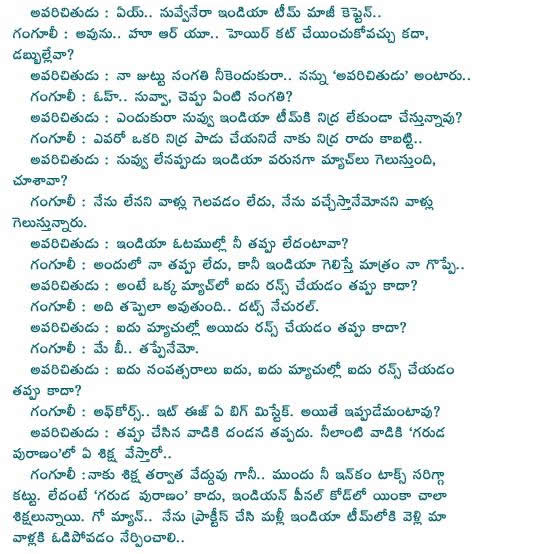 అపరిచితుడు : ఏయ్.. నువ్వేనేరా ఇండియా టీమ్ మాజీ కెప్టెన్..
గంగూలీ : అవును.. హూ ఆర్ యూ.. హెయిర్ కట్ చేయించుకోవచ్చు కదా,
డబ్బుల్లేవా?
అపరిచితుడు : నా జుట్టు సంగతి నీకెందుకురా.. నన్ను ‘అపరిచితుడు’ అంటారు..
గంగూలీ : ఓహ్.. నువ్వా, చెప్పు ఏంటి సంగతి?
అపరిచితుడు : ఎందుకురా నువ్వు ఇండియా టీమ్‌కి నిద్ర లేకుండా చేస్తున్నావు?
గంగూలీ : ఎవరో ఒకరి నిద్ర పాడు చేయనిదే నాకు నిద్ర రాదు కాబట్టి..
అపరిచితుడు : నువ్వు లేనప్పుడు ఇండియా వరుసగా మ్యాచ్‌లు గెలుస్తుంది,
చూశావా?
గంగూలీ : నేను లేనని వాళ్లు గెలవడం లేదు, నేను వచ్చేస్తానేమోనని వాళ్లు
గెలుస్తున్నారు.
అపరిచితుడు : ఇండియా ఓటముల్లో నీ తప్పు లేదంటావా?
గంగూలీ : అందులో నా తప్పు లేదు, కానీ ఇండియా గెలిస్తే మాత్రం నా గొప్పే..
అపరిచితుడు : అంటే ఒక్క మ్యాచ్‌లో ఐదు రన్స్ చేయడం తప్పు కాదా?
గంగూలీ : అది తప్పెలా అవుతుంది.. దట్స్ నేచురల్.
అపరిచితుడు : ఐదు మ్యాచుల్లో అయిదు రన్స్ చేయడం తప్పు కాదా?
గంగూలీ : మే బీ.. తప్పేనేమో.
అపరిచితుడు : ఐదు సంవత్సరాలు ఐదు, ఐదు మ్యాచుల్లో ఐదు రన్స్ చేయడం
తప్పు కాదా?
గంగూలీ : అఫ్‌కోర్స్.. ఇట్ ఈజ్ ఏ బిగ్ మిస్టేక్. అయితే ఇప్పుడేమంటావు?
అపరిచితుడు : తప్పు చేసిన వాడికి దండన తప్పదు. నీలాంటి వాడికి ‘గరుడ
పురాణం’లో ఏ శిక్ష వేస్తారో..
గంగూలీ :నాకు శిక్ష తర్వాత వేద్దువు గానీ.. ముందు నీ ఇన్‌కం టాక్స్ సరిగ్గా
కట్టు. లేదంటే ‘గరుడ పురాణం’ కాదు, ఇండియన్ పీనల్ కోడ్‌లో యింకా చాలా
శిక్షలున్నాయి. గో మ్యాన్.. నేను ప్రాక్టీస్ చేసి మళ్లీ ఇండియా టీమ్‌లోకి వెళ్లి మా
వాళ్లకి ఓడిపోవడం నేర్పించాలి..